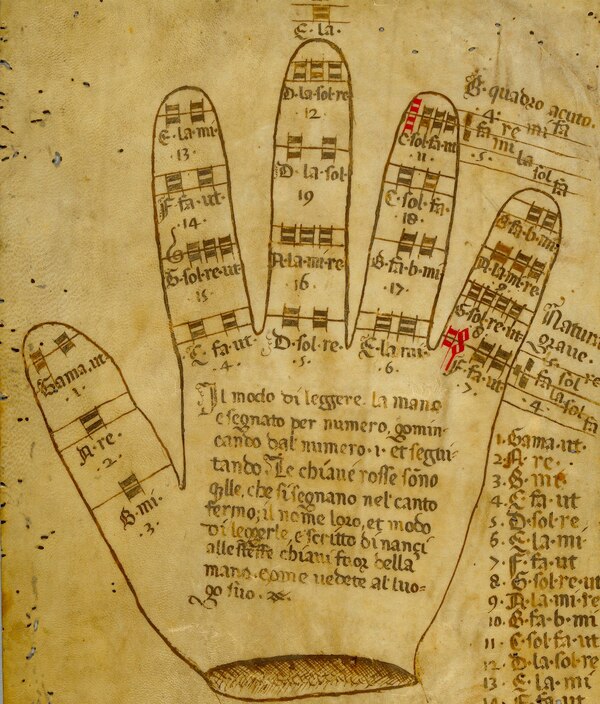 E la.
D la sol re
12
E la mi
13
C sol fa ut
11
B quadro acuto.
4
fa re mi fa
5
mi la sol fa
D la sol
19
F fa ut
14
C sol fa
18
B fa b mi
A la mi re
G sol re ut
15
A la mi re
16
B fa b mi
17
G sol re ut
8
Gama ut
1
C fa ut
4
D sol re
5
E la mi
6
F fa ut
7
Natura
grave.
sol re
fa la sol fa
4
A re
2
B mi
3
Il modo di leggere la mano
e segnato per numero, comin-
cando dal numero 1 et segui-
tando. Le chiave rosse sono
q̃lle, che si segnano nel canto
fermo; il nome loro, et modo
di leggerle, e scritto dinançi
alle steffe chiavi fuor della
mano, come vedete al luo-
go suo.
1. Gama ut
2. A re
3. B mi
4. C fa ut
5. D sol re
6. E la mi
7. F fa ut
8. G sol re ut
9. A la mi re
10. B fa b mi
11. C sol fa ut
12. D la sol re
13. E la mi
14. F fa ut